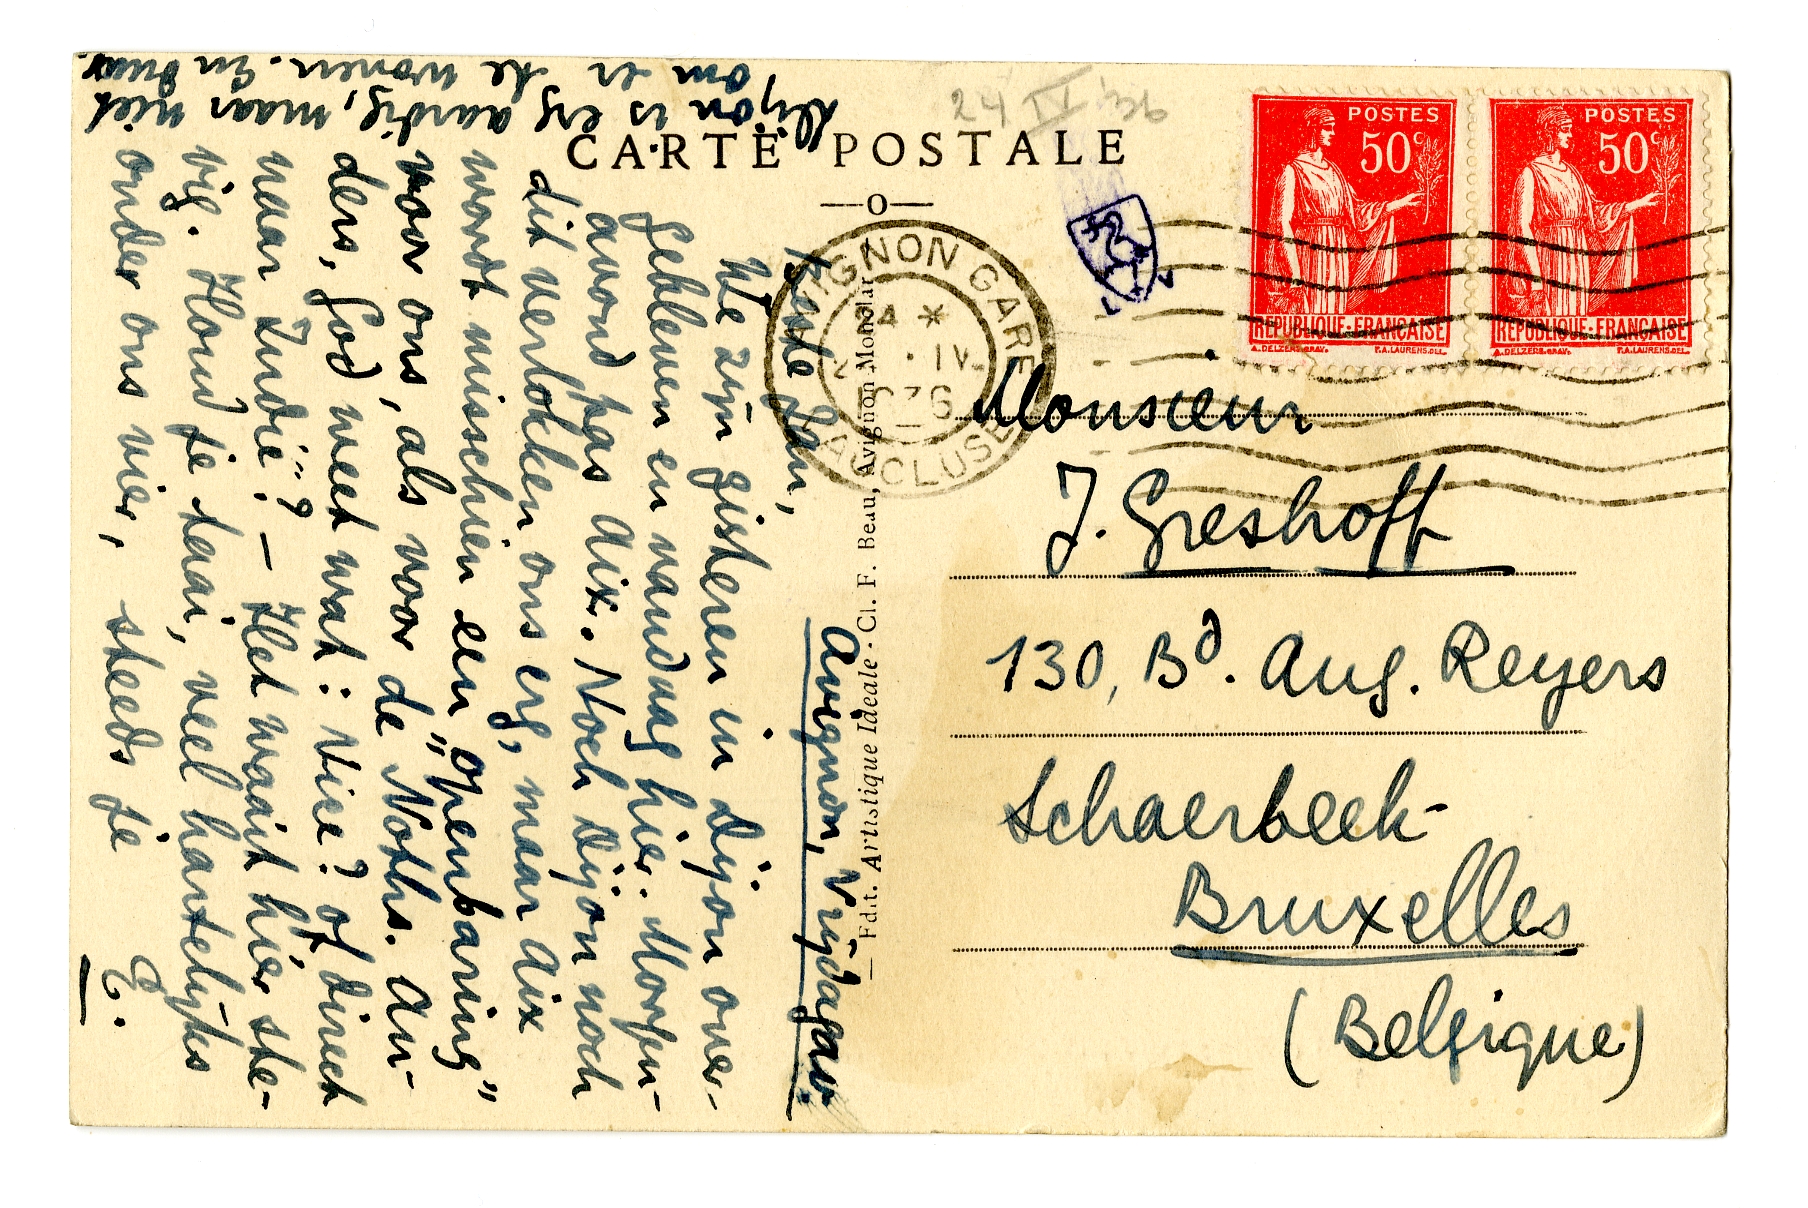 CARTE POSTALE
24 IV 36
POSTES
50c
REPUBLIQUE·FRANÇAISE
A.DELZERS.GRAV.
P.A.LAURENS.DEL.
POSTES
50c
REPUBLIQUE·FRANÇAISE
A.DELZERS.GRAV.
P.A.LAURENS.DEL.
AVIGNON GARE
VAUCLUSE
Edit. Artistique Idéale - Cl. F. Beau, Avignon Monolar
Avignon, Vrijdagav.
Beste Jan,
We zijn gisteren in Dijon over-
gebleven en vandaag hier. Morgen-
avond pas Aix. Noch Dijon noch
dit verlokken ons erg, maar Aix
wordt misschien een "openbaring"
voor ons, als voor de Noths. An-
ders, God weet wat: Vire? of direct
naar Indië? — Het waait hier ste-
vig. Houd je taai, veel hartelijks
onder ons vier, steeds je
E.
Dijon is erg aardig, maar niet
om er te wonen. En duur.
Monsieur
J. Greshoff
130, Bd. Aug. Reyers
Schaerbeek-
Bruxelles
(Belgique)